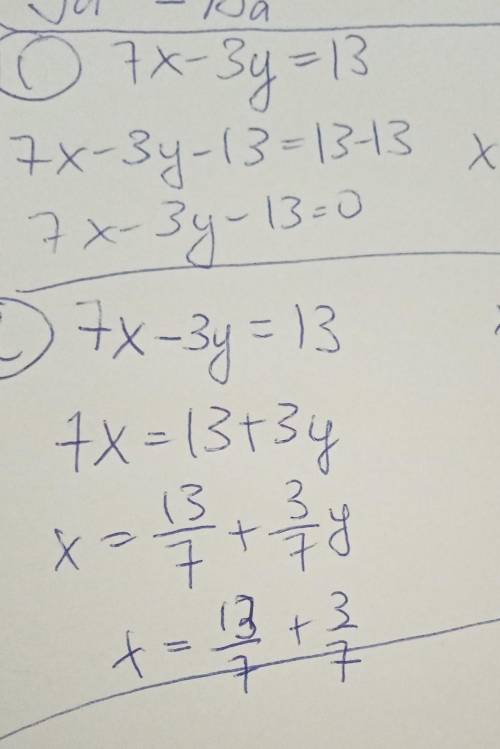 7x-3y=13
7x-3y-13=13-13 x
7x-3y-13=0
7x-3y=13
7x=13+3y
x=13/7+3/7y
x=13/7+3/7